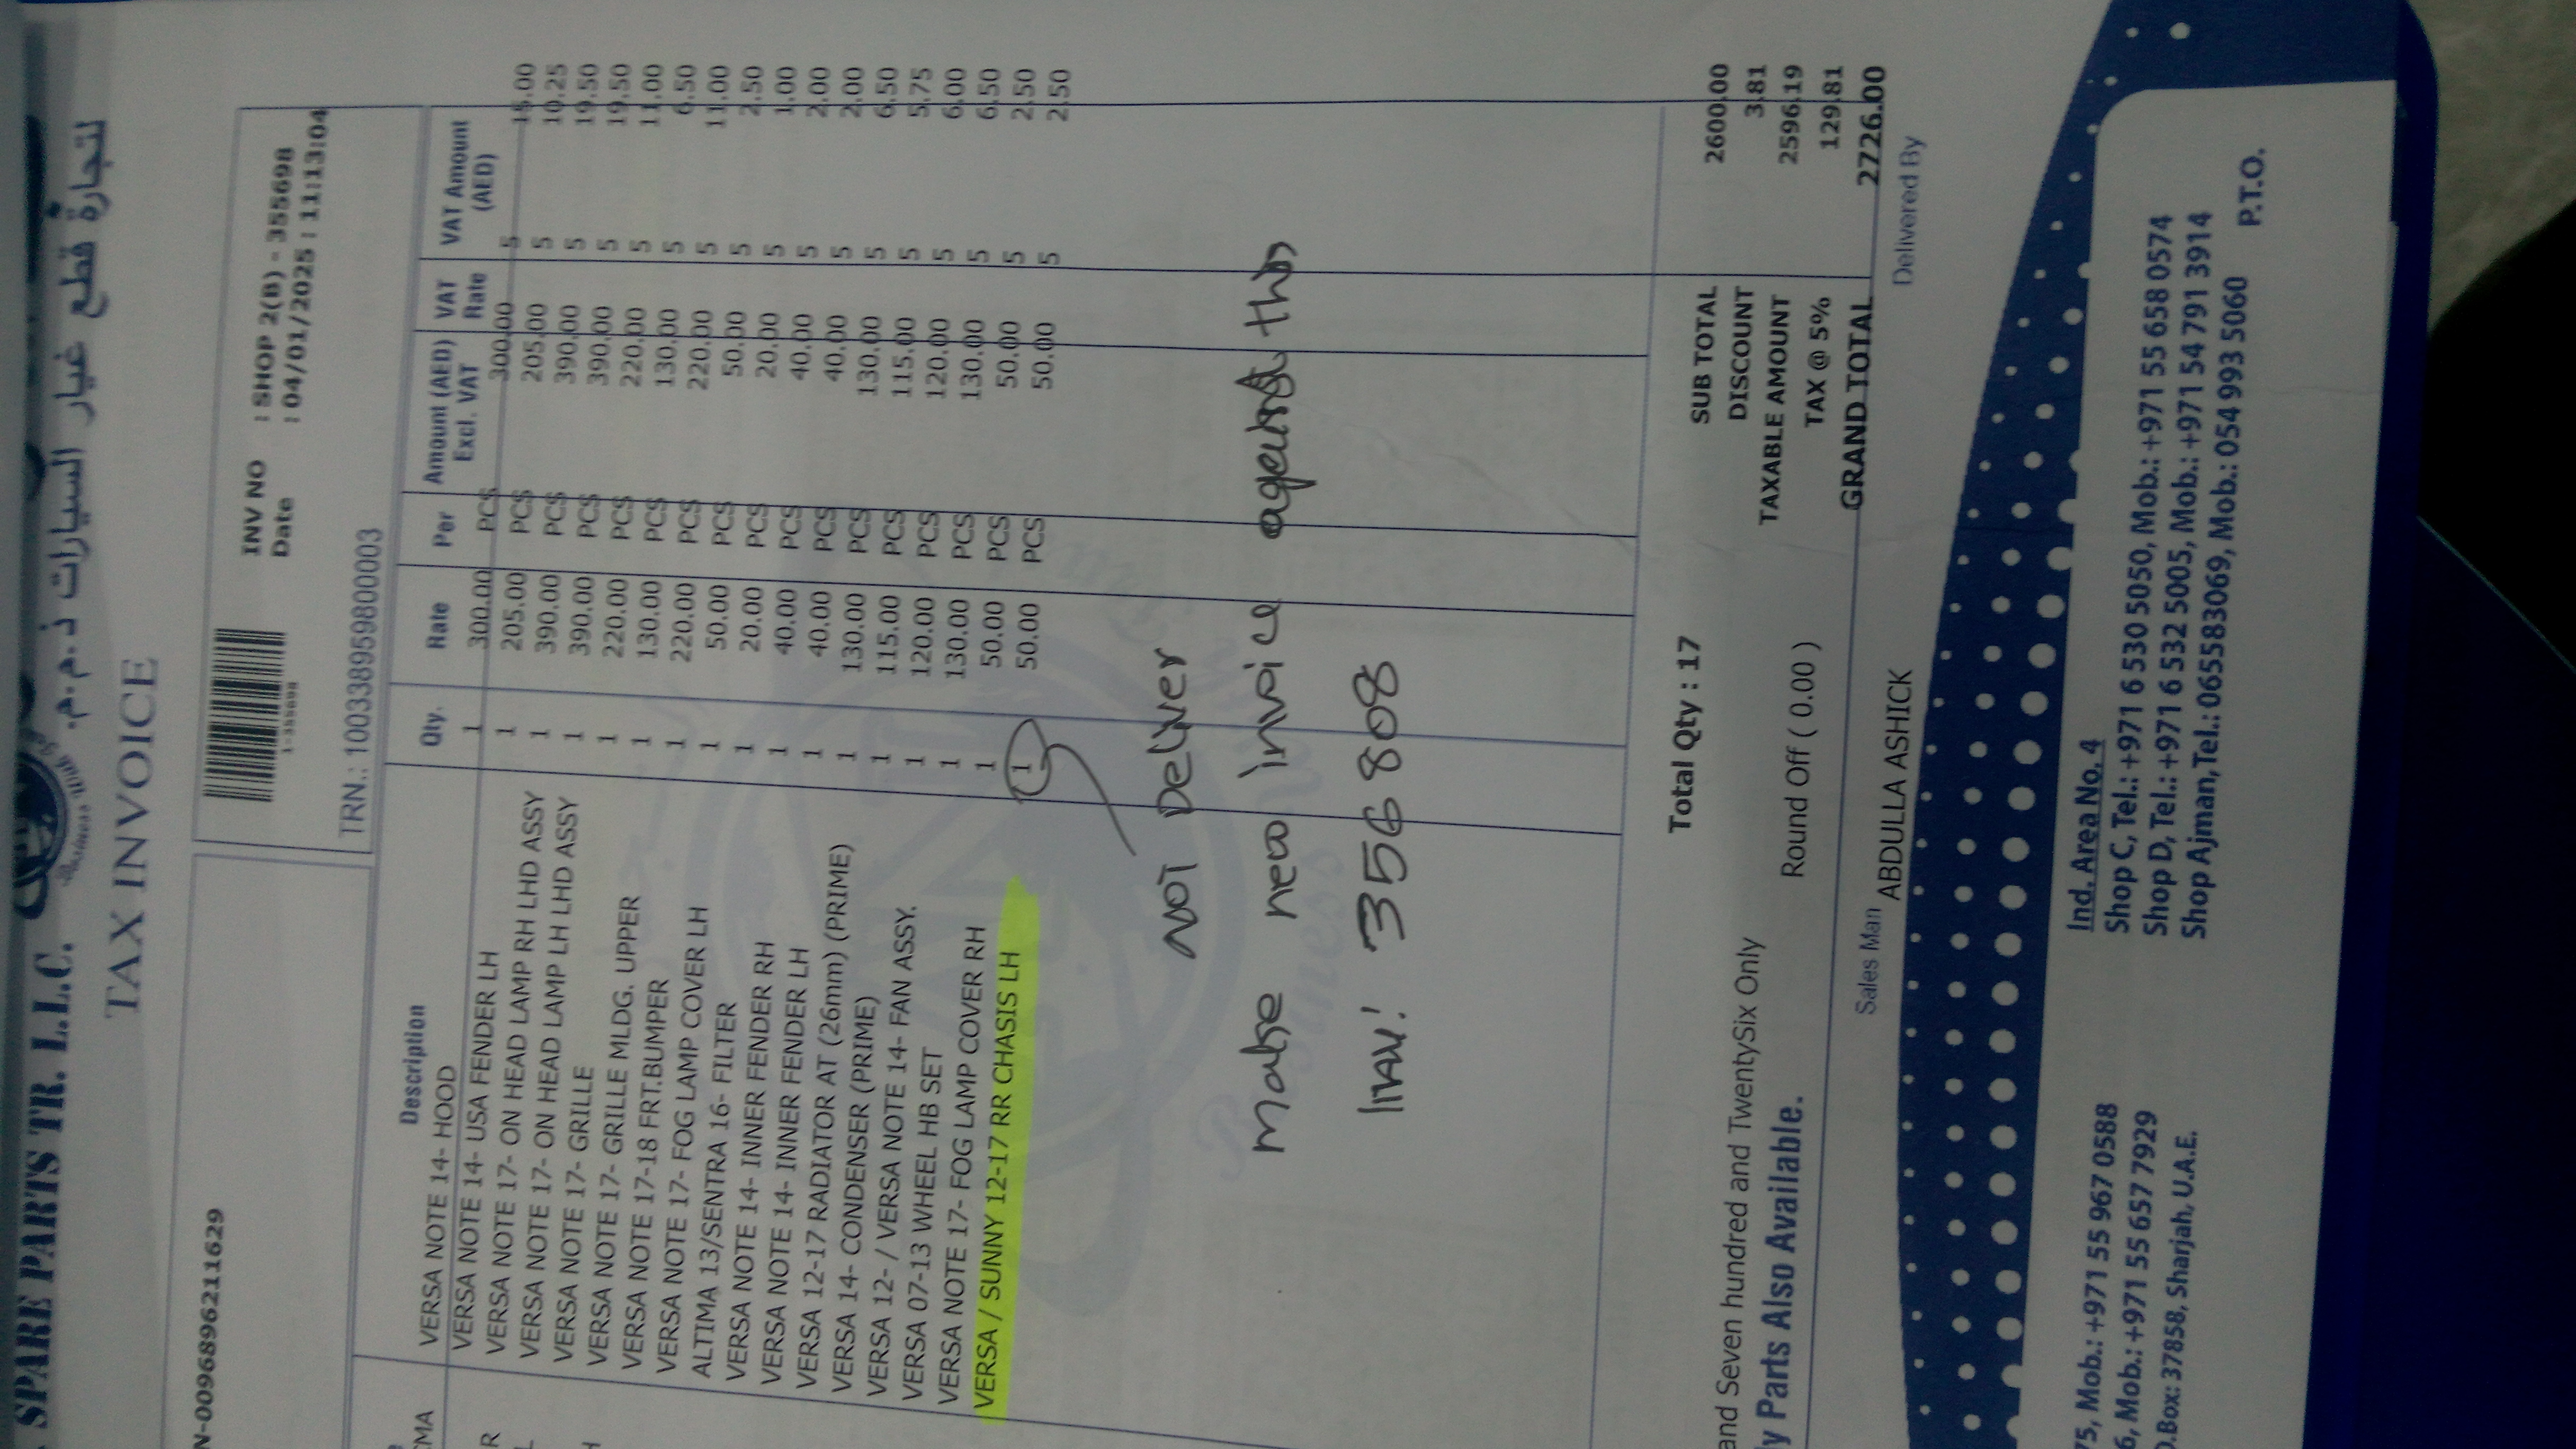 SPARE PARTS TR. L.L.C.
لتجارة قطع غيار السيارات ذ.م.م.
TAX INVOICE
INV NO : SHOP 2(B) - 355698
Date : 04/01/2025 : 11:13:04
1-355698
N-0096896211629
TRN.: 100338959800003
Description Qty. Rate Per Amount (AED) Excl. VAT VAT Rate VAT Amount (AED)
VERSA NOTE 14- HOOD 1 300.00 PCS 300.00 5 15.00
VERSA NOTE 14- USA FENDER LH 1 205.00 PCS 205.00 5 10.25
VERSA NOTE 17- ON HEAD LAMP RH LHD ASSY 1 390.00 PCS 390.00 5 19.50
VERSA NOTE 17- ON HEAD LAMP LH LHD ASSY 1 390.00 PCS 390.00 5 19.50
VERSA NOTE 17- GRILLE 1 220.00 PCS 220.00 5 11.00
VERSA NOTE 17- GRILLE MLDG. UPPER 1 130.00 PCS 130.00 5 6.50
VERSA NOTE 17-18 FRT.BUMPER 1 220.00 PCS 220.00 5 11.00
VERSA NOTE 17- FOG LAMP COVER LH 1 50.00 PCS 50.00 5 2.50
ALTIMA 13/SENTRA 16- FILTER 1 20.00 PCS 20.00 5 1.00
VERSA NOTE 14- INNER FENDER RH 1 40.00 PCS 40.00 5 2.00
VERSA NOTE 14- INNER FENDER LH 1 40.00 PCS 40.00 5 2.00
VERSA 12-17 RADIATOR AT (26mm) (PRIME) 1 130.00 PCS 130.00 5 6.50
VERSA 14- CONDENSER (PRIME) 1 115.00 PCS 115.00 5 5.75
VERSA 12- / VERSA NOTE 14- FAN ASSY. 1 120.00 PCS 120.00 5 6.00
VERSA 07-13 WHEEL HB SET 1 130.00 PCS 130.00 5 6.50
VERSA NOTE 17- FOG LAMP COVER RH 1 50.00 PCS 50.00 5 2.50
VERSA / SUNNY 12-17 RR CHASIS LH 1 50.00 PCS 50.00 5 2.50
NOT Deliver
make new invoice against this
Inv! 356808
Total Qty : 17
SUB TOTAL 2600.00
DISCOUNT 3.81
TAXABLE AMOUNT 2596.19
TAX @ 5% 129.81
GRAND TOTAL 2726.00
and Seven hundred and TwentySix Only
Round Off ( 0.00 )
y Parts Also Available.
Sales Man ABDULLA ASHICK
Delivered By
Ind. Area No. 4
Shop C, Tel.: +971 6 530 5050, Mob.: +971 55 658 0574
Shop D, Tel.: +971 6 532 5005, Mob.: +971 54 791 3914
Shop Ajman, Tel.: 065583069, Mob.: 054 993 5060
P.T.O.
75, Mob.: +971 55 967 0588
6, Mob.: +971 55 657 7929
O.Box: 37858, Sharjah, U.A.E.